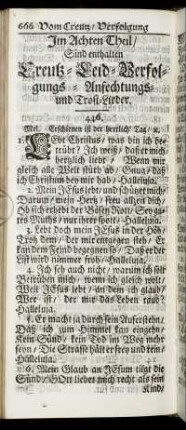 666 Vom Creutz / Verfolgung
Im Achten Theil /
Sind enthalten
Creutz-Leid-Verfol-
gungs-Anfechtungs-
und Trost-Lieder.
446.
Mel. Erschienen ist der herrlich Tag / ꝛc.
1. HErr Christus / was bin ich be-
trübt / Ich weiß / daß er mich
hertzlich liebt / Wenn mir
gleich all Welt stürb ab / Gnug / daß
ich Christum bey mir hab / Halleluja.
2. Mein JEsus lebt / und schützt mich /
Darum / mein Hertz / freu allzeit dich /
Ob sich erhebt der Bösen Macht /
Mutts / nur ihrer spott / Halleluja.
3. Lebt doch mein JEsus in der Höh /
Trotz dem / der mir entgegen steh / Er
kan dem Feind begegnen so / Daß er der
List wird nimmer froh / Halleluja.
4. Ich seh auch nicht / warum ich solt
Betrüben mich / wenn ich gleich wolt /
Weil JEsus lebt / in dem ich glaub /
Wer ist / der mir das Leben raub?
Halleluja.
5. Er macht ja durch sein Auferstehn /
Daß ich zum Himmel kan eingehn /
Kein Sünd / kein Tod im Weg mehr
seyn / Die Strasse hält er frey und rein /
Halleluja.
6. Mein Glaub an JEsum tilgt die
Sünd / GOtt liebet mich recht als sein
Kind /